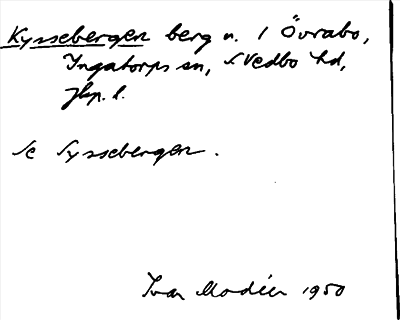 Kyssebergen berg n. i Övrabo,
Ingatorps sn, S Vedbo hd,
Jkp. l.
Se Syssebergen.
Ivar Modéer 1950